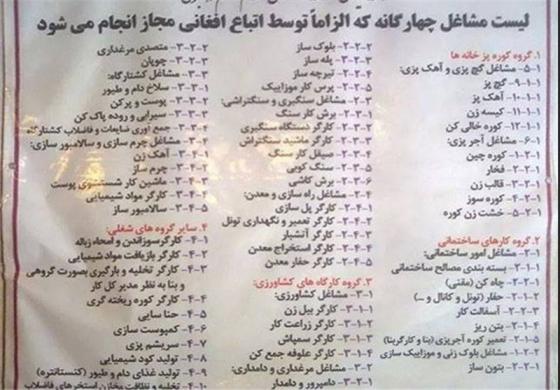 لیست مشاغل چهارگانه که الزاماً توسط اتباع افغانی مجاز انجام می شود
۱. گروه کوره پز خانه ها
۱-۵- مشاغل گچ پزی و آهک پزی:
۱-۱-۹- گچ پز
۱-۱-۱۰- آهک پز
۱-۱-۱۱- کیسه زن
۱-۱-۱۲- کوره خالی کن
۱-۶- مشاغل آجر پزی:
۱-۲-۱- کوره چین
۱-۲-۲- فخار
۱-۲-۳- قالب زن
۱-۲-۴- کوره سوز
۱-۲-۵- خشت زن کوره
۲. گروه کارهای ساختمانی
۲-۱- مشاغل امور ساختمانی:
۲-۱-۱- بسته بندی مصالح ساختمانی
۲-۱-۲- چاه کن (مقنی)
۲-۱-۲- حفار (تونل و کانال و ...)
۲-۱-۲- آسفالت کار
۲-۱-۴- بتن ریز
۲-۱-۵- تعمیر کوره آجرپزی (بنا و کارگربنا)
۲-۱-۲- مشاغل بلوک زنی و موزاییک سازی
۲-۲-۱- بتون ساز
۲-۲-۲- بلوک ساز
۲-۲-۳- پله ساز
۲-۲-۴- تیرچه ساز
۲-۲-۵- پرس کار موزاییک
۲-۲- مشاغل سنگبری و سنگتراشی:
۲-۳-۱- برش کار سنگ
۲-۳-۲- کارگر دستگاه سنگبری
۲-۳-۳- کارگر ماشید سنگتراش
۲-۳-۴- صیقل کار سنگ
۲-۳-۵- سنگ کوبی
۲-۳-۶- برش کاشی
۲-۳- مشاغل راه سازی و معدن:
۲-۴-۱- کارگر پل سازی
۲-۴-۲- کارگر تعمیر و نگهداری تونل
۲-۴-۳- کارگر آتشبار
۲-۴-۳- کارگر استخراج معدن
۲-۴-۴- کارگر حفار معدن
۳. گروه کارگاه های کشاورزی:
۳-۱- مشاغل کشاورزی:
۳-۱-۱- کارگر بیل زن
۳-۱-۲- کارگر زراعت کار
۳-۱-۳- کارگر سمپاش
۳-۱-۴- کارگر علوفه جمع کن
۳-۲- مشاغل مرغداری و دامداری:
۳-۲-۱- دامپرور و دامدار
۳-۲-۲- متصدی مرغداری
۳-۲-۳- چوپان
۳-۳- مشاغل کشتارگاه:
۳-۳-۱- سلاخ دام و طیور
۳-۳-۲- پوست و پرکن
۳-۳-۳- سیرابی و روده پاک کن
۳-۳-۴- جمع آوری ضایعات و فاضلاب کشتارگاه
۳-۴- مشاغل چرم سازی و سالامبور سازی:
۳-۴-۱- آهک زن
۳-۴-۲- چرم ساز
۳-۴-۳- ماشین کار شستشوی پوست
۳-۴-۴- کارگر مواد شیمیایی
۳-۴-۵- سالامبور ساز
۴. سایر گروه های شغلی:
۴-۱- کارگر سوزاندن و امحاء زباله
۴-۲- کارگر بازیافت مواد شیمیایی
۴-۳- کارگر تخلیه و بارگیری بصورت گروهی
و بنا به نظر مدیر کل کار
۴-۴- کارگر کوره ریخته گری
۴-۵- حنا سایی
۴-۶- کمپوست سازی
۴-۷- سریشم پزی
۴-۸- تولید کود شیمیایی
۴-۹- تولید غذای دام و طیور (کنستانتره)
۴-۱۰- تخلیه و نظافت مخازن استخرهای فاضلاب